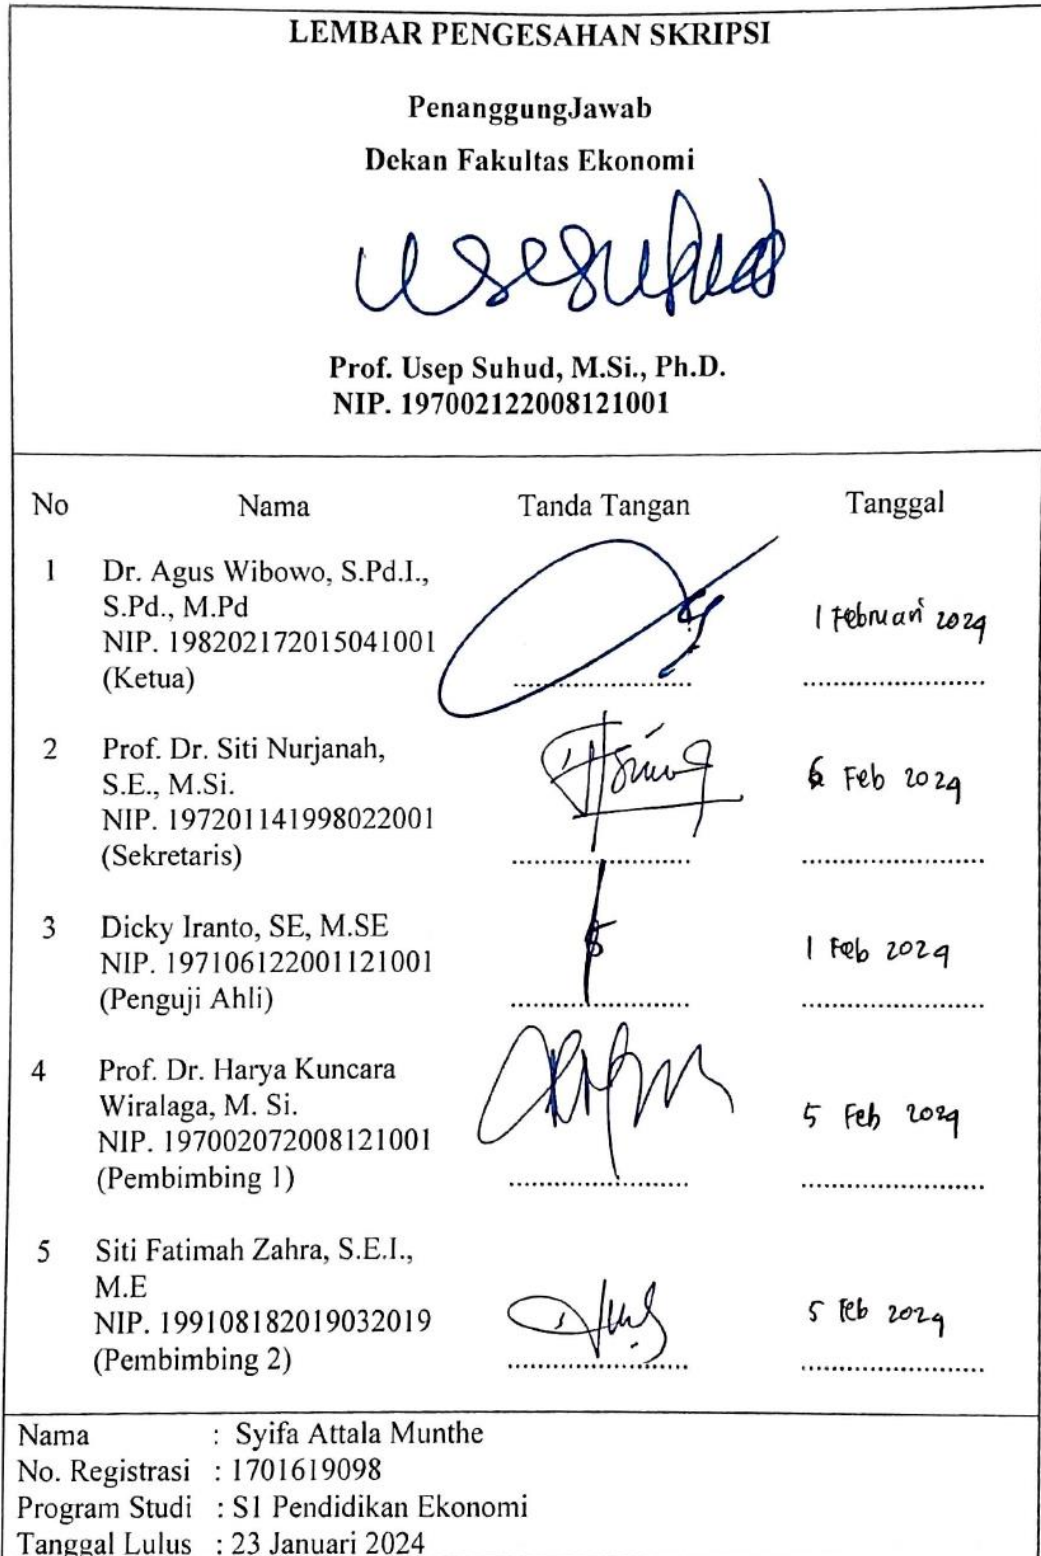 LEMBAR PENGESAHAN SKRIPSI
PenanggungJawab
Dekan Fakultas Ekonomi
Prof. Usep Suhud, M.Si., Ph.D.
NIP. 197002122008121001
No Nama Tanda Tangan Tanggal
1 Dr. Agus Wibowo, S.Pd.I.,
S.Pd., M.Pd
NIP. 198202172015041001
(Ketua)
1 Februari 2024
2 Prof. Dr. Siti Nurjanah,
S.E., M.Si.
NIP. 197201141998022001
(Sekretaris)
6 Feb 2024
3 Dicky Iranto, SE, M.SE
NIP. 197106122001121001
(Penguji Ahli)
1 Feb 2024
4 Prof. Dr. Harya Kuncara
Wiralaga, M. Si.
NIP. 197002072008121001
(Pembimbing 1)
5 Feb 2024
5 Siti Fatimah Zahra, S.E.I.,
M.E
NIP. 199108182019032019
(Pembimbing 2)
5 Feb 2024
Nama : Syifa Attala Munthe
No. Registrasi : 1701619098
Program Studi : S1 Pendidikan Ekonomi
Tanggal Lulus : 23 Januari 2024